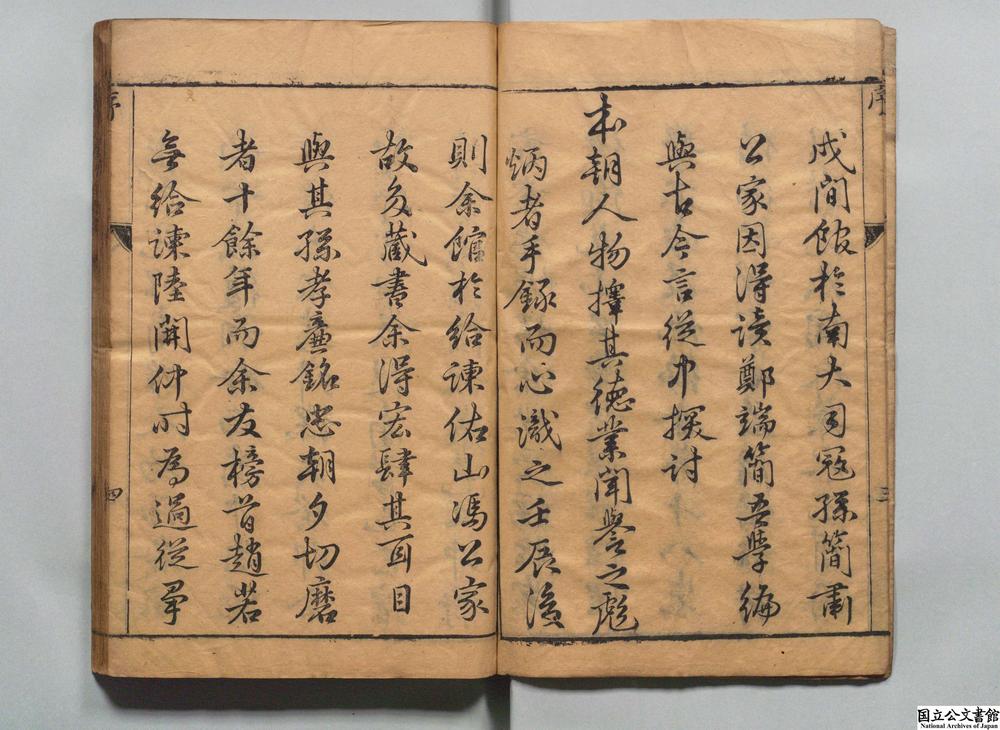 序
三
戍間館於南大司寇孫簡肅
公家因得讀鄭端簡吾學編
與古今言從中探討
本朝人物擇其德業聞譽之彪
炳者手錄而心識之壬辰後
則余館於給諫佑山馮公家
故多藏書余得宏肆其耳目
與其孫孝廉銘忠朝夕切磨
者十餘年而余友榜首趙若
無給諫陸開仲時為過從爭
序
四
国立公文書館
National Archives of Japan